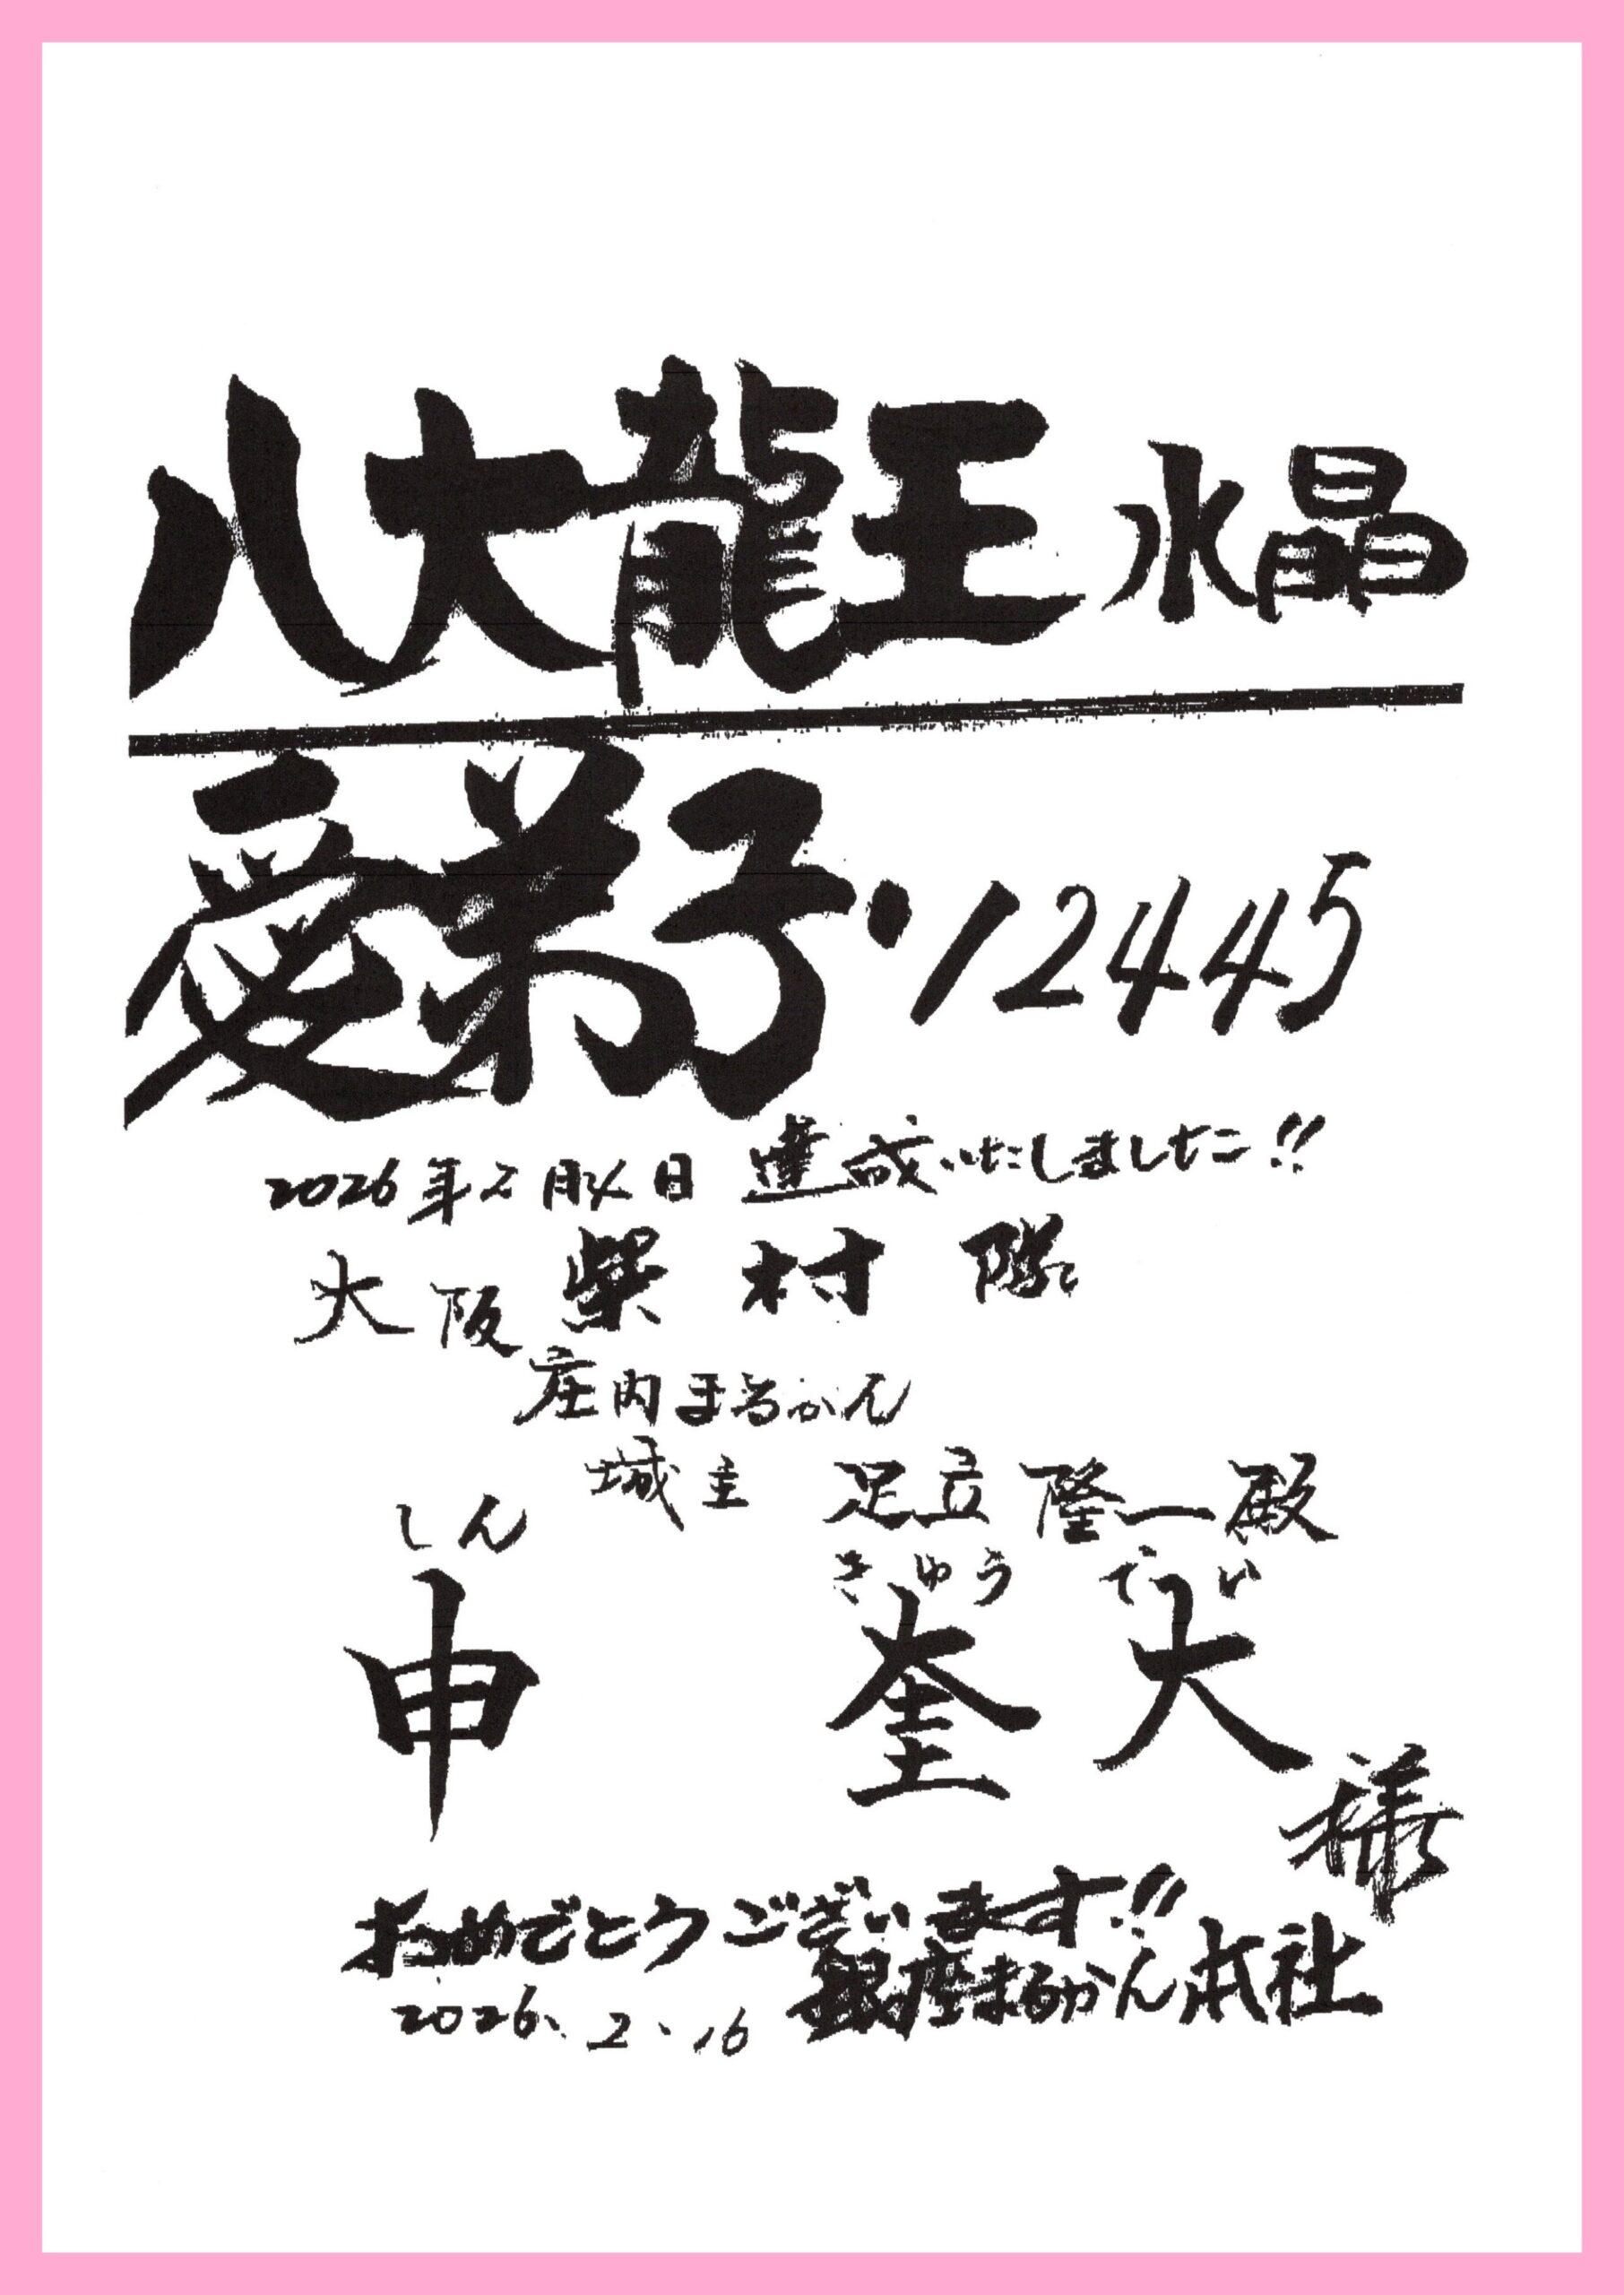 八大龍王水晶
愛弟子・12445
2026年2月14日 達成いたしました!!
大阪 柴村隊
庄内まるかん
城主 足立隆一殿
しん きゅう でい
申 奎大様
おめでとうございます!!
2026.2.16 銀座まるかん本社